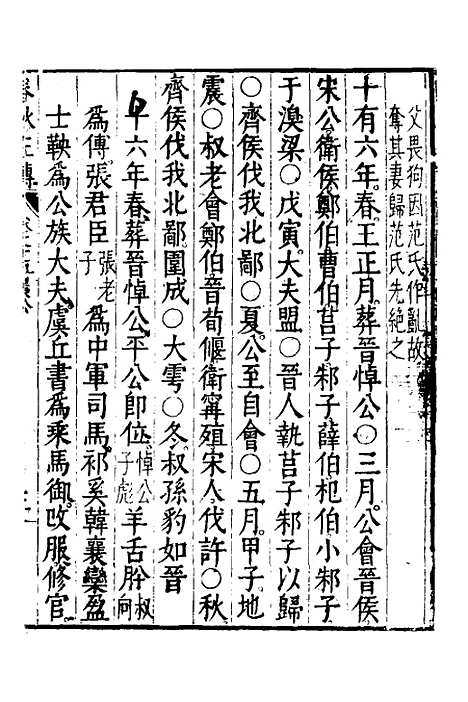 父畏狗因范氏作亂故
奪其妻歸范氏先絶之
十有六年春王正月葬晉悼公○三月公會晉侯
宋公衛侯鄭伯曹伯莒子邾子薛伯杞伯小邾子
于溴梁○戊寅大夫盟○晉人執莒子邾子以歸
○齊侯伐我北鄙○夏公至自會○五月甲子地
震○叔老會鄭伯晉荀偃衛甯殖宋人伐許○秋
齊侯伐我北鄙圍成○大雩○冬叔孫豹如晉
十六年春葬晉悼公平公即位悼公子彪羊舌肸叔向
為傅張君臣張老子為中軍司馬祁奚韓襄欒盈
士鞅為公族大夫虞丘書為乘馬御改服修官
春秋左傳